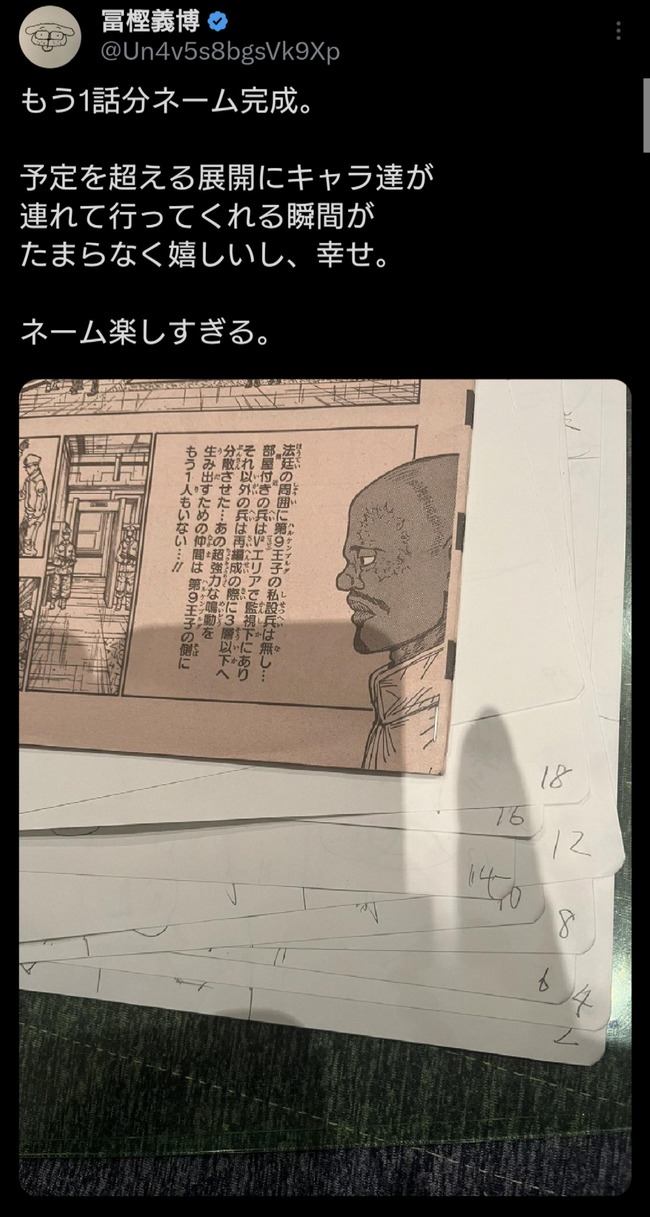 冨樫義博
@Un4v5s8bgsVk9Xp
もう1話分ネーム完成。
予定を超える展開にキャラ達が
連れて行ってくれる瞬間が
たまらなく嬉しいし、幸せ。
ネーム楽しすぎる。
法廷の周囲に第9王子の私設兵は無し…
部屋付きの兵はVエリアで監視下にあり
それ以外の兵は再編成の際に3層以下へ
分散させた…あの超強力な鳴動を
生み出すための仲間は 第9王子の側に
もう1人もいない…!!
18
16
12
14
10
8
6
4
2